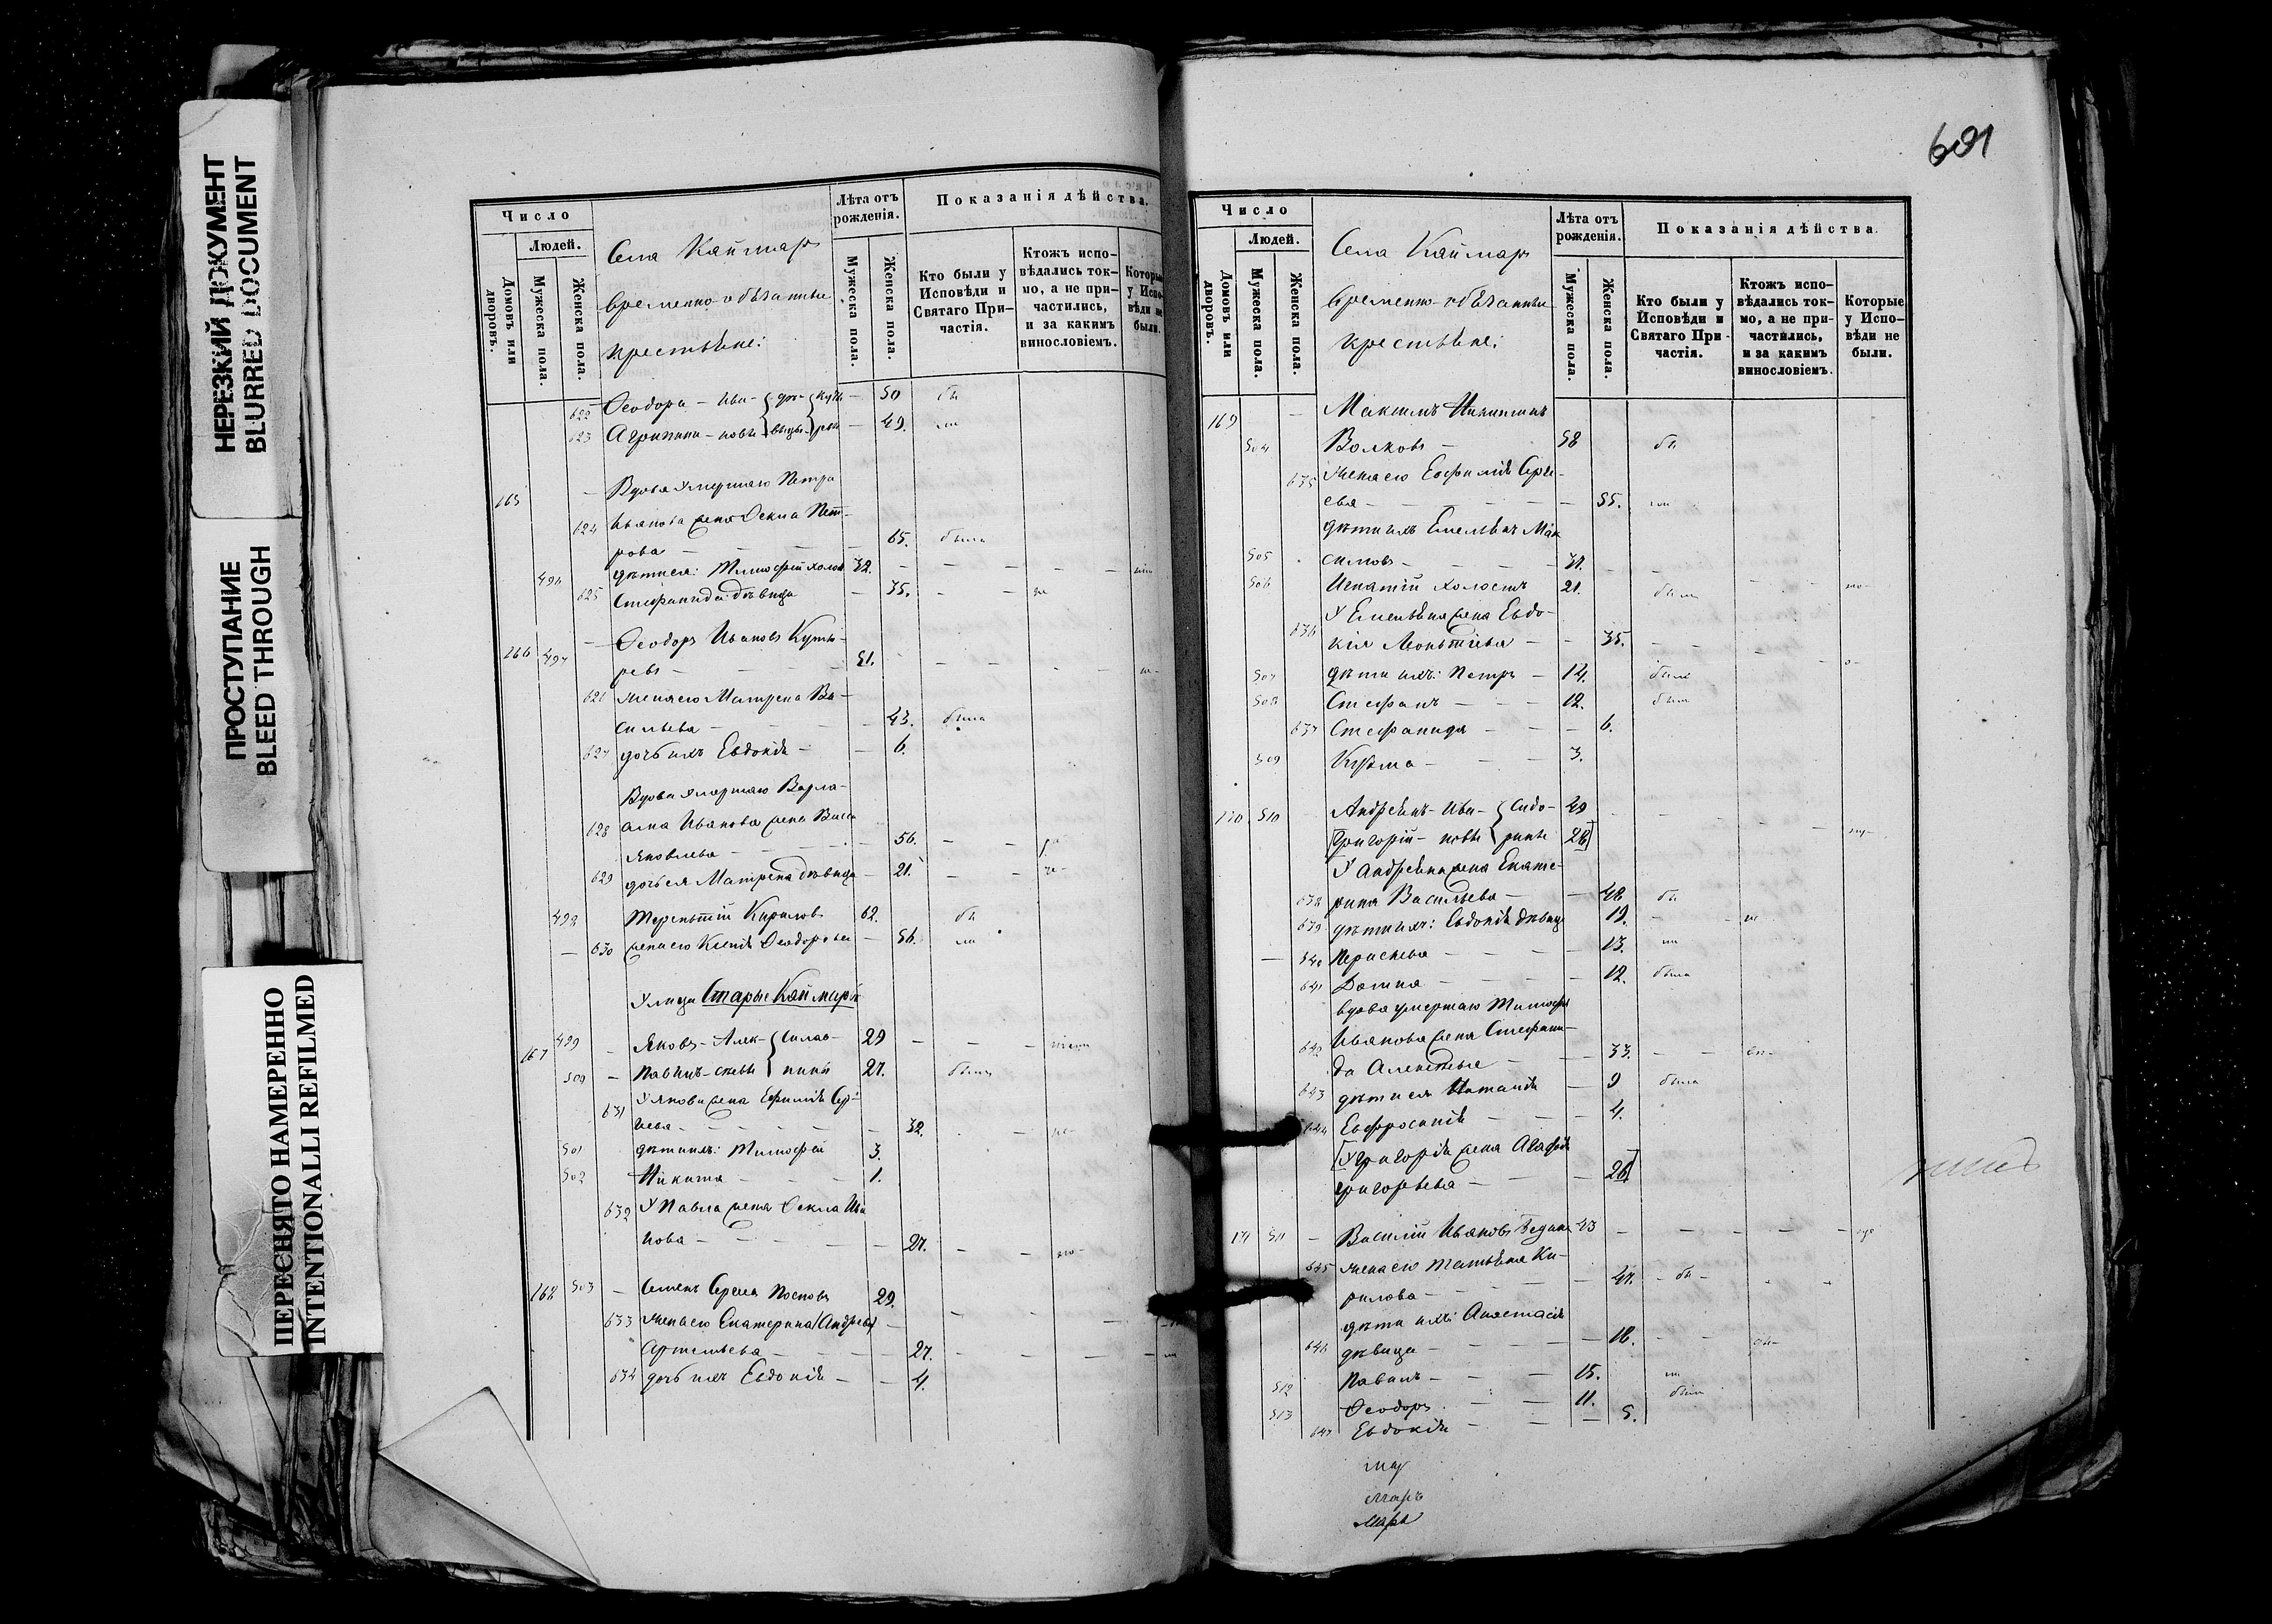 НЕРЕЗКИЙ ДОКУМЕНТ
BLURRED DOCUMENT
ПРОСТУПАНИЕ
BLEED THROUGH
ПЕРЕСНЯТО НАМЕРЕННО
INTENTIONALLI REFILMED
Число
Людей.
Домовъ или дворовъ.
Мужеска пола.
Женска пола.
Села Каймаръ
временно-обязанные
крестьяне:
Лѣта отъ рожденія.
Мужеска пола.
Женска пола.
Показанія дѣйства.
Кто были у Исповѣди и Святаго Причастія.
Ктожъ исповѣдались токмо, а не причастились, и за какимъ винословіемъ.
Которые у Исповѣди не были.
622 Ѳеодора – Ива- – 50
623 Агрипина – новы – 49.
165 – Вдова умершаго Петра
624 Иванова жена Ѳекла Пет-
рова – 65. была
496 дѣти ея: Тимоѳей холост 32.
625 Стефанида дѣвица – 35.
166 497 – Ѳеодоръ Ивановъ Куты-
ревъ – 51.
626 жена его Матрена Ва-
сильева – 43. была
627 дочь ихъ Евдокія – 6.
Вдова умершаго Варла-
628 ама Иванова жена Васса
Яковлева – 56.
629 дочь ея Матрена дѣвица – 21.
498 Терентій Кириловъ 62.
– 630 жена его Ксенія Ѳеодорова – 56.
Улица Старые Каймары
167 499 – Яковъ – Алек- Силав- 29
500 – Павелъ – сѣевы 27.
631 У Якова жена Евфимія Сер-
геева – 32.
501 дѣти ихъ: Тимоѳей 3.
502 Никита – 1.
632 У Павла жена Ѳекла Ива
нова – 27.
168 503 – Семенъ Сергеевъ 29.
633 жена его Екатерина (Андреева)
Артемьева – 27.
634 дочь ихъ Евдокія – 4.
601
Число
Людей.
Домовъ или дворовъ.
Мужеска пола.
Женска пола.
Села Каймаръ
временно-обязанные
крестьяне:
Лѣта отъ рожденія.
Мужеска пола.
Женска пола.
Показанія дѣйства.
Кто были у Исповѣди и Святаго Причастія.
Ктожъ исповѣдались токмо, а не причастились, и за какимъ винословіемъ.
Которые у Исповѣди не были.
169 – Максимъ
504 Волковъ – 58
635 жена его Евфимія Серге-
ева – 55.
дѣти ихъ Емельянъ Мак
505 симовъ – 31.
506 Игнатій холостъ 21.
У Емельяна жена Евдо-
636 кія Леонтіева – 35.
507 дѣти ихъ: Петръ – 14.
508 Стефанъ – 12.
637 Стефанида – 6.
509 Кузьма – 3.
170 510 Андреянъ – Ива- Сидо- 49
Григорій – новы рины 26
У Андреяна жена Екате-
638 рина Васильева – 48
639 дѣти ихъ: Евдокія дѣвица 19.
640 Параскева – 13.
641 Домна – 12. была
вдова умершаго Тимоѳея
642 Иванова жена Стефани-
да Алексѣева – 33.
643 дѣти ея Наталія – 9 была
644 Евфросинія – 4.
У Григорія жена Агафія
Григорьева – 26
171 511 – Василій Ивановъ 43
645 жена его Татьяна Ки-
рилова – 41.
дѣти ихъ: Анастасія
646 дѣвица – 18.
512 Павелъ – 15.
513 Ѳеодоръ – 11.
647 Евдокія – 5.